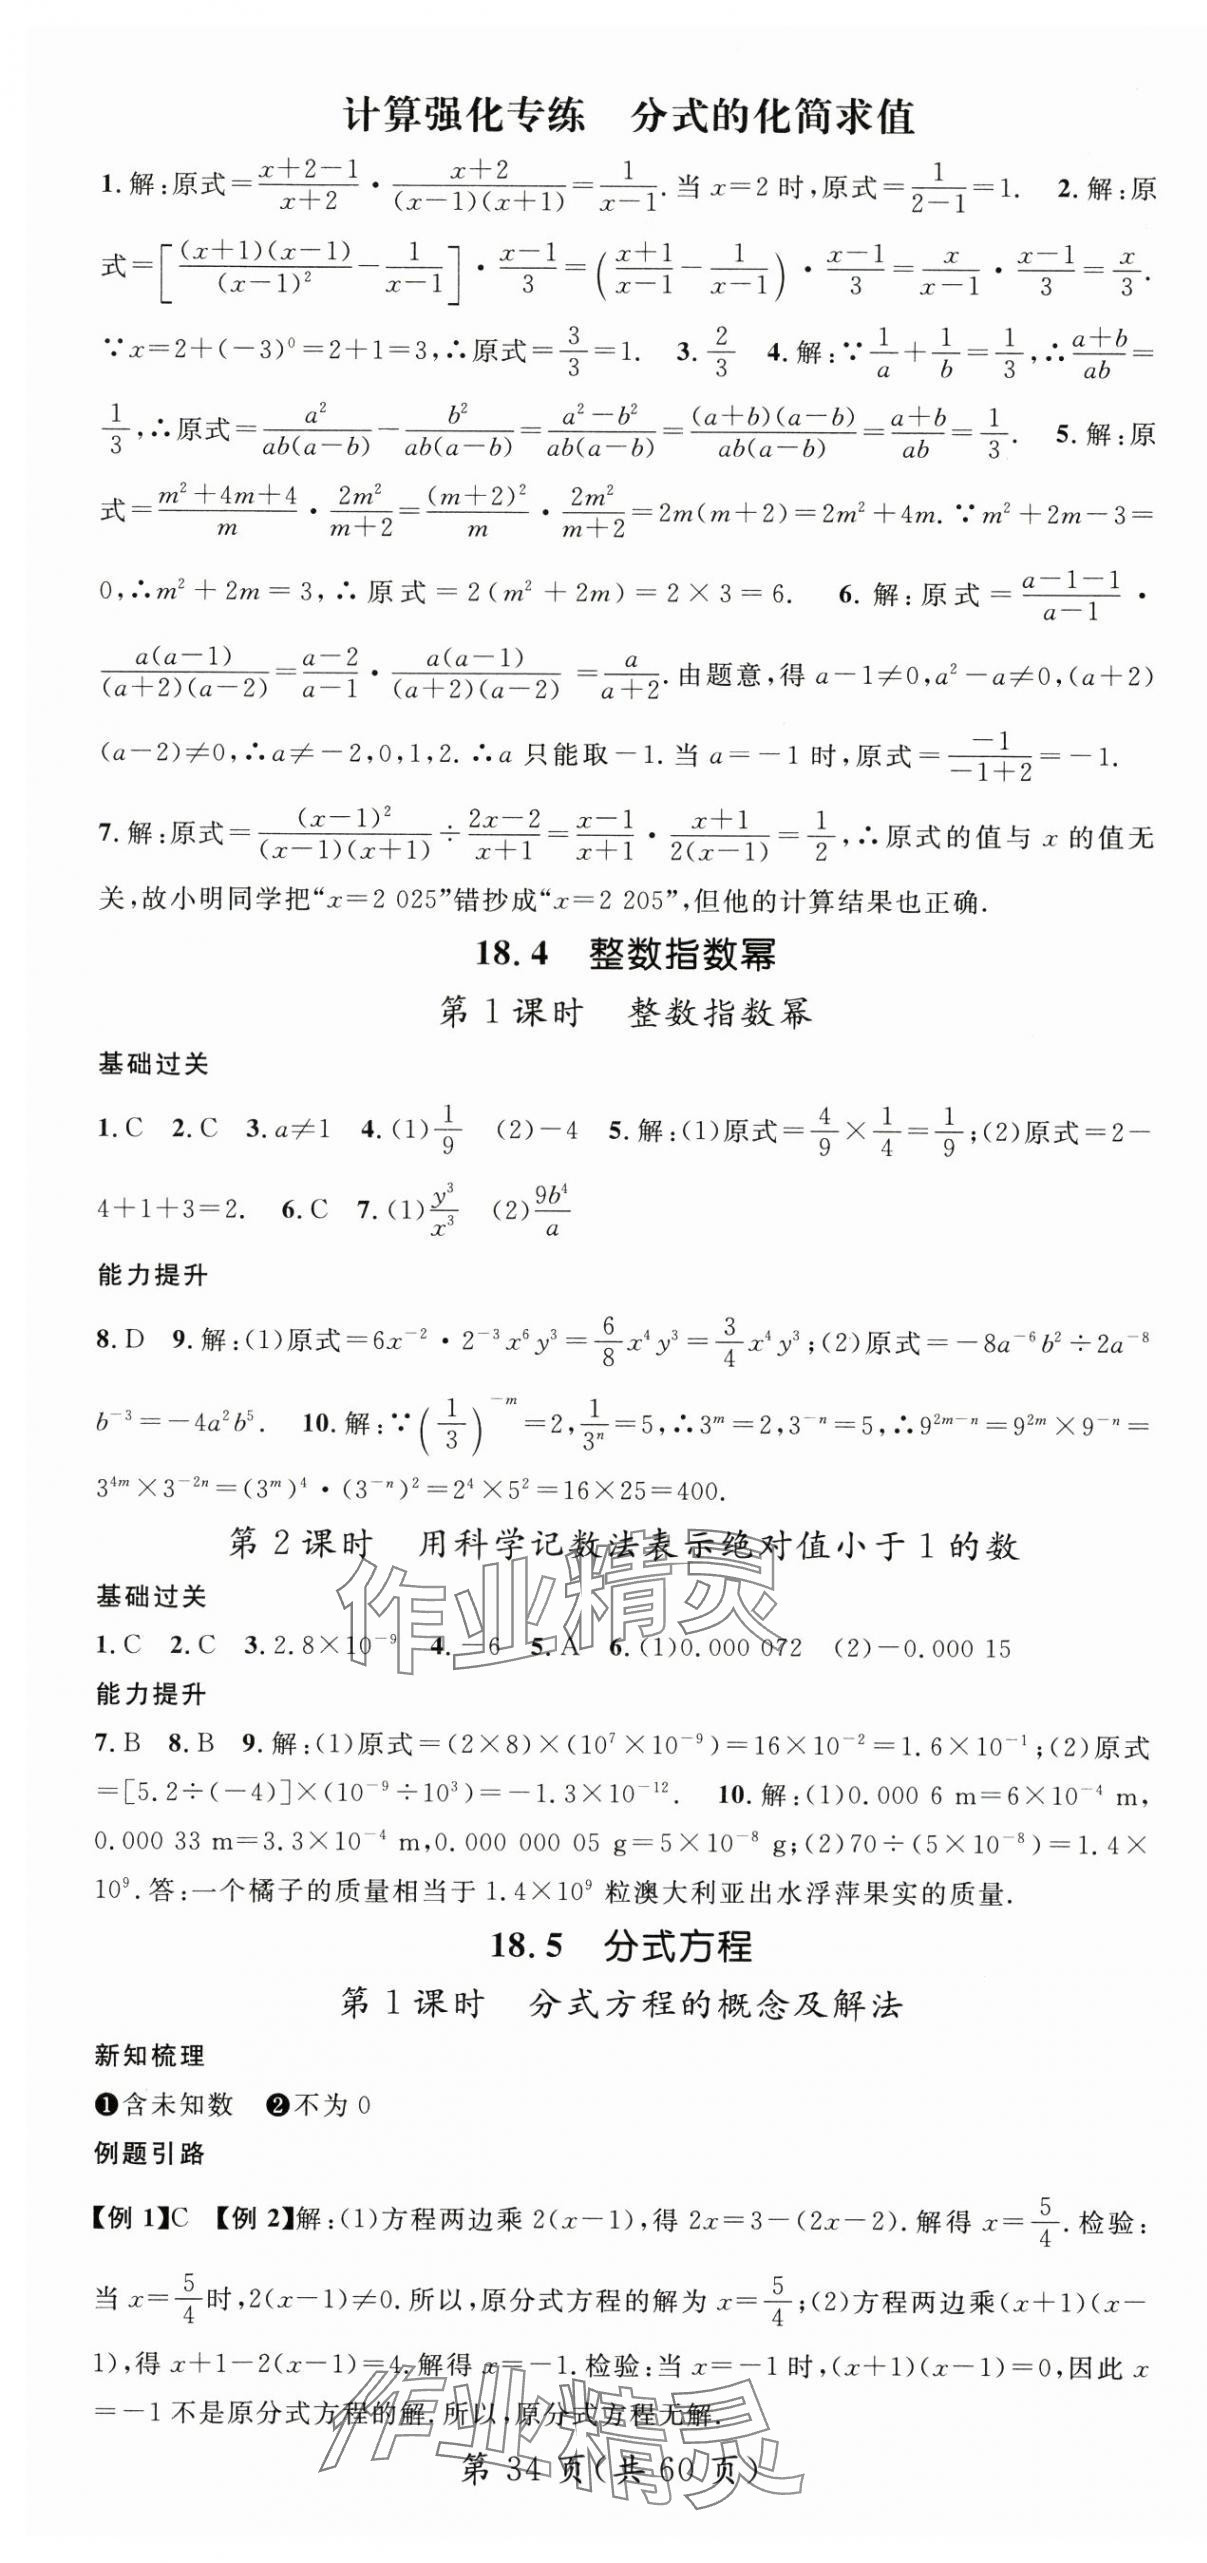 计算强化专练　分式的化简求值
1.解:原式=\frac{x+2-1}{x+2}·\frac{x+2}{(x-1)(x+1)}=\frac{1}{x-1}.当x=2时,原式=\frac{1}{2-1}=1.　2.解:原
式=[\frac{(x+1)(x-1)}{(x-1)²}-\frac{1}{x-1}]·\frac{x-1}{3}=(\frac{x+1}{x-1}-\frac{1}{x-1})·\frac{x-1}{3}=\frac{x}{x-1}·\frac{x-1}{3}=\frac{x}{3}.
∵x=2+(-3)⁰=2+1=3,∴原式=\frac{3}{3}=1.　3.\frac{2}{3}　4.解:∵\frac{1}{a}+\frac{1}{b}=\frac{1}{3},∴\frac{a+b}{ab}=
\frac{1}{3},∴原式=\frac{a²}{ab(a-b)}-\frac{b²}{ab(a-b)}=\frac{a²-b²}{ab(a-b)}=\frac{(a+b)(a-b)}{ab(a-b)}=\frac{a+b}{ab}=\frac{1}{3}.　5.解:原
式=\frac{m²+4m+4}{m}·\frac{2m²}{m+2}=\frac{(m+2)²}{m}·\frac{2m²}{m+2}=2m(m+2)=2m²+4m.∵m²+2m-3=
0,∴m²+2m=3,∴原式=2(m²+2m)=2×3=6.　6.解:原式=\frac{a-1-1}{a-1}·
\frac{a(a-1)}{(a+2)(a-2)}=\frac{a-2}{a-1}·\frac{a(a-1)}{(a+2)(a-2)}=\frac{a}{a+2}.由题意,得a-1≠0,a²-a≠0,(a+2)
(a-2)≠0,∴a≠-2,0,1,2.∴a只能取-1.当a=-1时,原式=\frac{-1}{-1+2}=-1.
7.解:原式=\frac{(x-1)²}{(x-1)(x+1)}÷\frac{2x-2}{x+1}=\frac{x-1}{x+1}·\frac{x+1}{2(x-1)}=\frac{1}{2},∴原式的值与x的值无
关,故小明同学把“x=2 025”错抄成“x=2 205”,但他的计算结果也正确.
18.4　整数指数幂
第1课时　整数指数幂
基础过关
1.C　2.C　3.a≠1　4.(1)\frac{1}{9}　(2)-4　5.解:(1)原式=\frac{4}{9}×\frac{1}{4}=\frac{1}{9};(2)原式=2-
4+1+3=2.　6.C　7.(1)\frac{y³}{x³}　(2)\frac{9b⁴}{a}
能力提升
8.D　9.解:(1)原式=6x⁻²·2⁻³x⁶y³=\frac{6}{8}x⁴y³=\frac{3}{4}x⁴y³;(2)原式=-8a⁻⁶b²÷2a⁻⁸
b⁻³=-4a²b⁵.　10.解:∵(\frac{1}{3})^{-m}=2,\frac{1}{3ⁿ}=5,∴3^{m}=2,3^{-n}=5,∴9^{2m-n}=9^{2m}×9^{-n}=
3^{4m}×3^{-2n}=(3^{m})⁴·(3^{-n})²=2⁴×5²=16×25=400.
第2课时　用科学记数法表示绝对值小于1的数
基础过关
1.C　2.C　3.2.8×10⁻⁹　4.-6　5.A　6.(1)0.000 072　(2)-0.000 15
能力提升
7.B　8.B　9.解:(1)原式=(2×8)×(10⁷×10⁻⁹)=16×10⁻²=1.6×10⁻¹;(2)原式
=[5.2÷(-4)]×(10⁻⁹÷10³)=-1.3×10⁻¹².　10.解:(1)0.000 6 m=6×10⁻⁴ m,
0.000 33 m=3.3×10⁻⁴ m,0.000 000 05 g=5×10⁻⁸ g;(2)70÷(5×10⁻⁸)=1.4×
10⁹.答:一个橘子的质量相当于1.4×10⁹粒澳大利亚出水浮萍果实的质量.
18.5　分式方程
第1课时　分式方程的概念及解法
新知梳理
❶含未知数　❷不为0
例题引路
【例1】C　【例2】解:(1)方程两边乘2(x-1),得2x=3-(2x-2).解得x=\frac{5}{4}.检验:
当x=\frac{5}{4}时,2(x-1)≠0.所以,原分式方程的解为x=\frac{5}{4};(2)方程两边乘(x+1)(x-
1),得x+1-2(x-1)=4.解得x=-1.检验:当x=-1时,(x+1)(x-1)=0,因此x
=-1不是原分式方程的解.所以,原分式方程无解.
第 34 页(共 60 页)
作业精灵
作业精灵